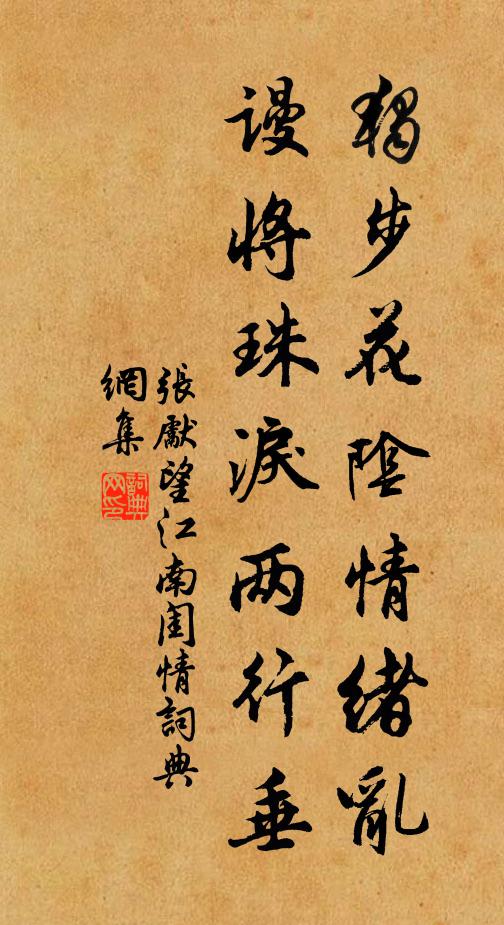 獨步花陰情緒亂
謾將珠淚两行垂
張獻望江南閨情詞典
網集
詞典
网印